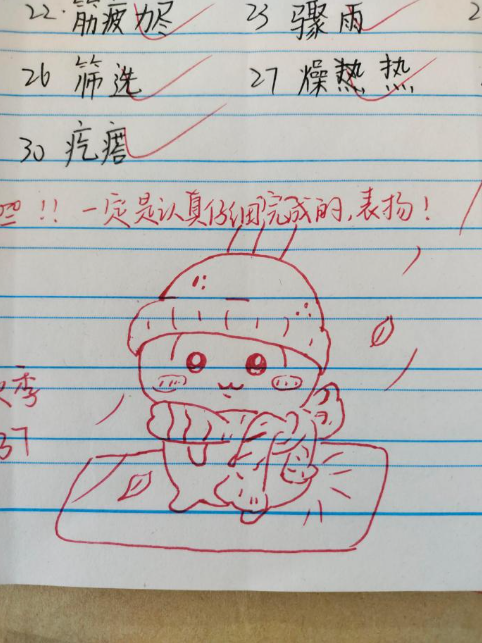 22. 筋疲力尽 23 骤雨 2
26 筛洗 27 燥热 热
30 疙瘩
!! 一定是认真仔细完成的，表扬！
季
37